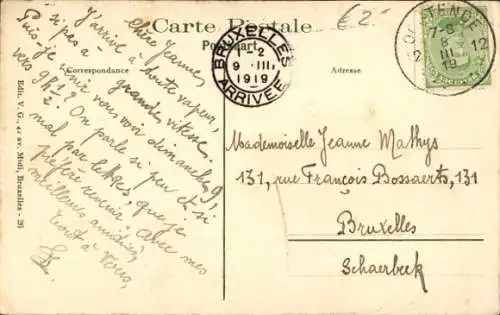 Carte Postale
Postkaart
Correspondance
Adresse
€ 2.-
BRUXELLES
1-2
9 III
1919
ARRIVÉE
OOSTENDE
7-8
8
III
19
2 12
Chère Jeanne,
J'arrive à toute vapeur,
si pas à grande vitesse.
Puis-je venir vous voir dimanche 9,
vers 9h ½? On parle si peu et si
mal par lettres, que je
préfère revenir. Avec mes
meilleures amitiés,
Tout à Vous,
Mademoiselle Jeanne Mathys
131, rue François Bossaerts, 131
Bruxelles
Schaerbeek
Edit. V. G., 41 av. Muti, Bruxelles - 26